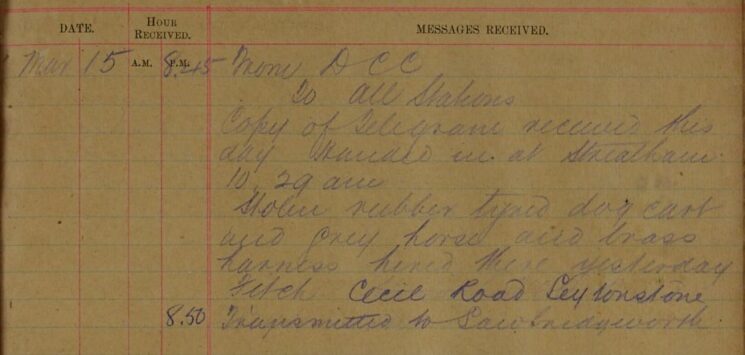 DATE. HOUR RECEIVED. MESSAGES RECEIVED.
Mar 15 A.M. 8.45 P.M. From D C C
To all Stations
Copy of Telegram received this
day Handed in at Streatham
10.29 am
Stolen rubber tyred dog cart
and grey horse and brass
harness hired there yesterday
Fitch Cecil Road Leytonstone
8.50 Transmitted to Sawbridgeworth